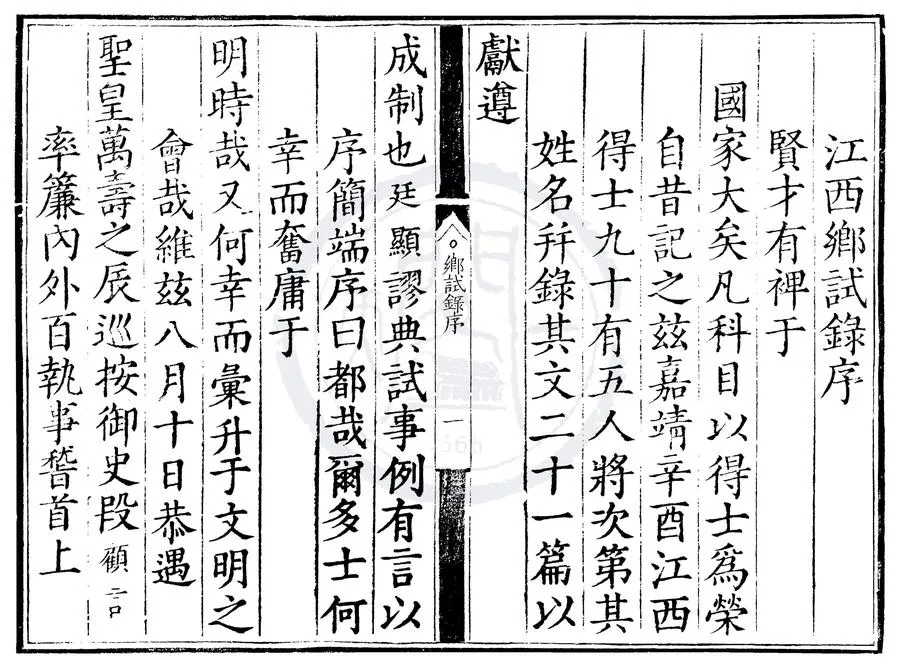 江西鄉試錄序
賢才有裨于
國家大矣凡科目以得士爲榮
自昔記之兹嘉靖辛酉江西
得士九十有五人將次第其
姓名幷錄其文二十一篇以
獻遵
鄉試錄序
一
成制也廷顯謬典試事例有言以
序簡端序曰都哉爾多士何
幸而奮庸于
明時哉又何幸而彙升于文明之
會哉維兹八月十日恭遇
聖皇萬壽之辰巡按御史段顧言
率簾內外百執事稽首上